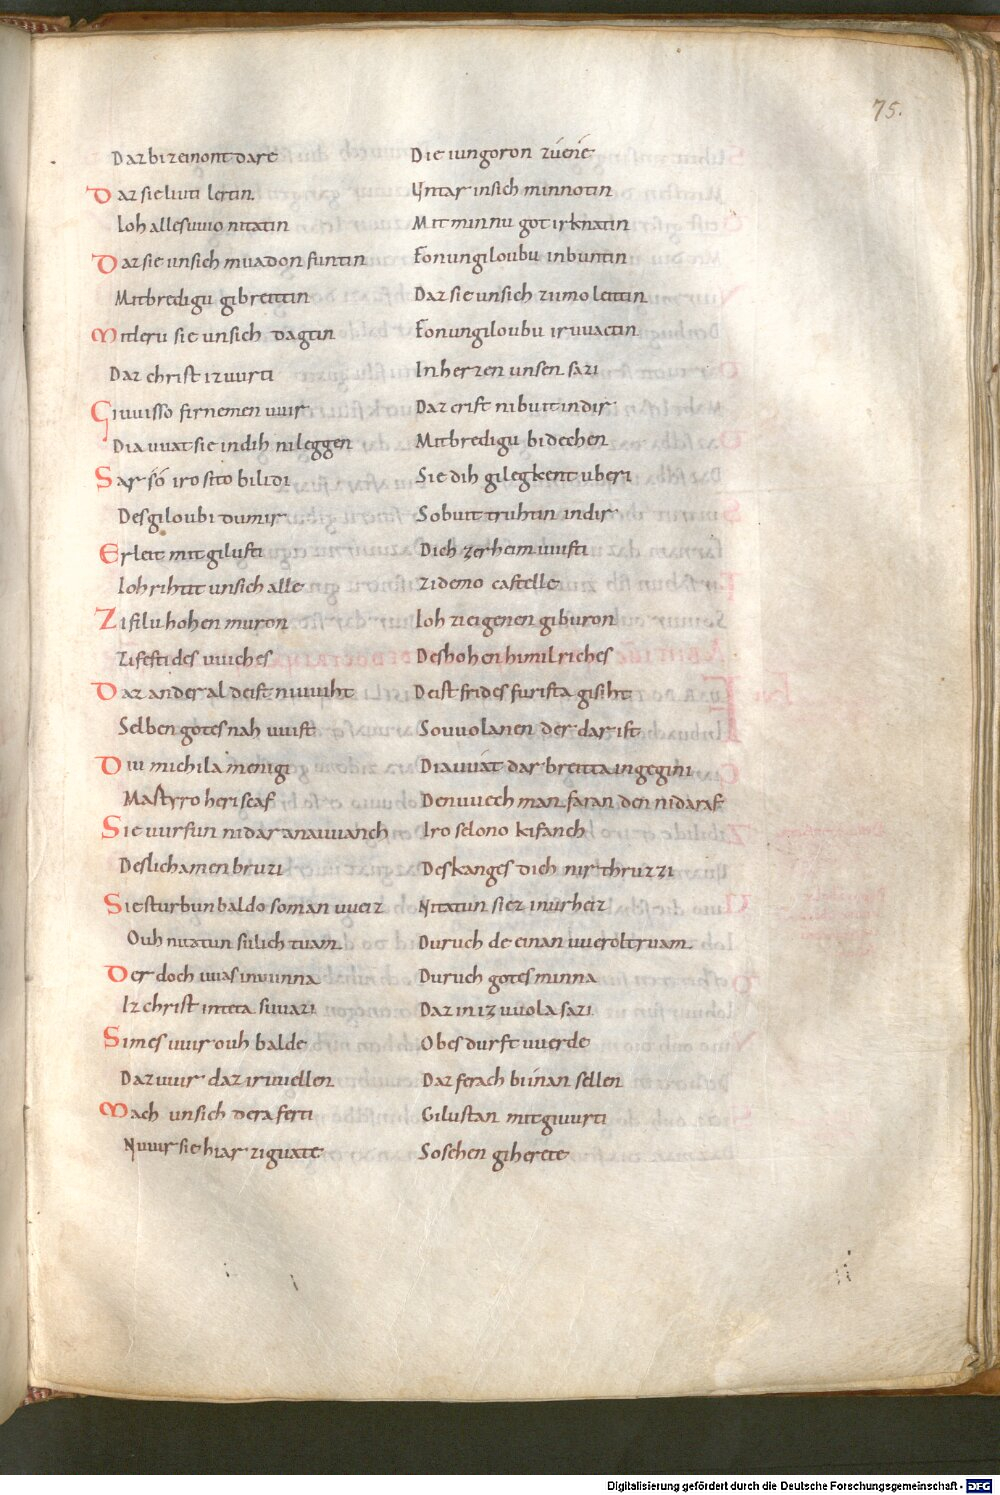 75.
Daz bizeinont dare Die iungoron zúéié
Daz sie liuti lertin Untar in sich minnotin
Ioh alles uuio nitatin Mit minnu got irknatin
Daz sie unsich muadon funtin Fon ungiloubu inbuntin
Mit bredigu gibreittin Daz sie unsich zi imo leittin
Mit leru sie unsich dagtin Fon ungiloubu iruuactin
Daz christ iz uurti In herzen unsen sazi
Giuuisso firnemen uuir Daz crist ni buit in dir
Dia uuat sie in dih ni leggen Mit bredigu bidechen
Sar só iro sito bilidi Sie dih gilegkent uberi
Des giloubi du mir So buit truhtin in dir
Er leit mit gilusti Dich zer heimuuisti
Ioh rihtit unsich alle Zi demo castelle
Zi filu hohen muron Ioh zi eigenen giburon
Zi festi des uuiches Des hohen himilriches
Daz ander al deist niuuiht Deist frides furista gisiht
Selben gotes nah uuist So uuola nen der dar ist
Diu michila menigi Dia uuát dar breitta ingegini
Martyro heriscaf Den uuech man faran den nidaraf
Sie uurfun nidar ana uuanch Iro selono kifanch
Des lichamen bruzi Des kanges dich nir thruzzi
Sie sturbun baldo so man uueiz Nitatun si ez in urheiz
Ouh ni tatun sulich tuam Duruch de einan uueroltruam
Der doch uuas in uunna Duruch gotes minna
Iz christ in teta suuazi Daz in iz uuola sazi
Simes uuir ouh balde Ob es durft uuerde
Daz uuir daz iruuellen Daz ferach biinan sellen
Mach unsich dera ferti Gilustan mit giuurti
Nu uuir sie hiar zi guate So sehen giherete
Digitalisierung gefördert durch die Deutsche Forschungsgemeinschaft - DFG